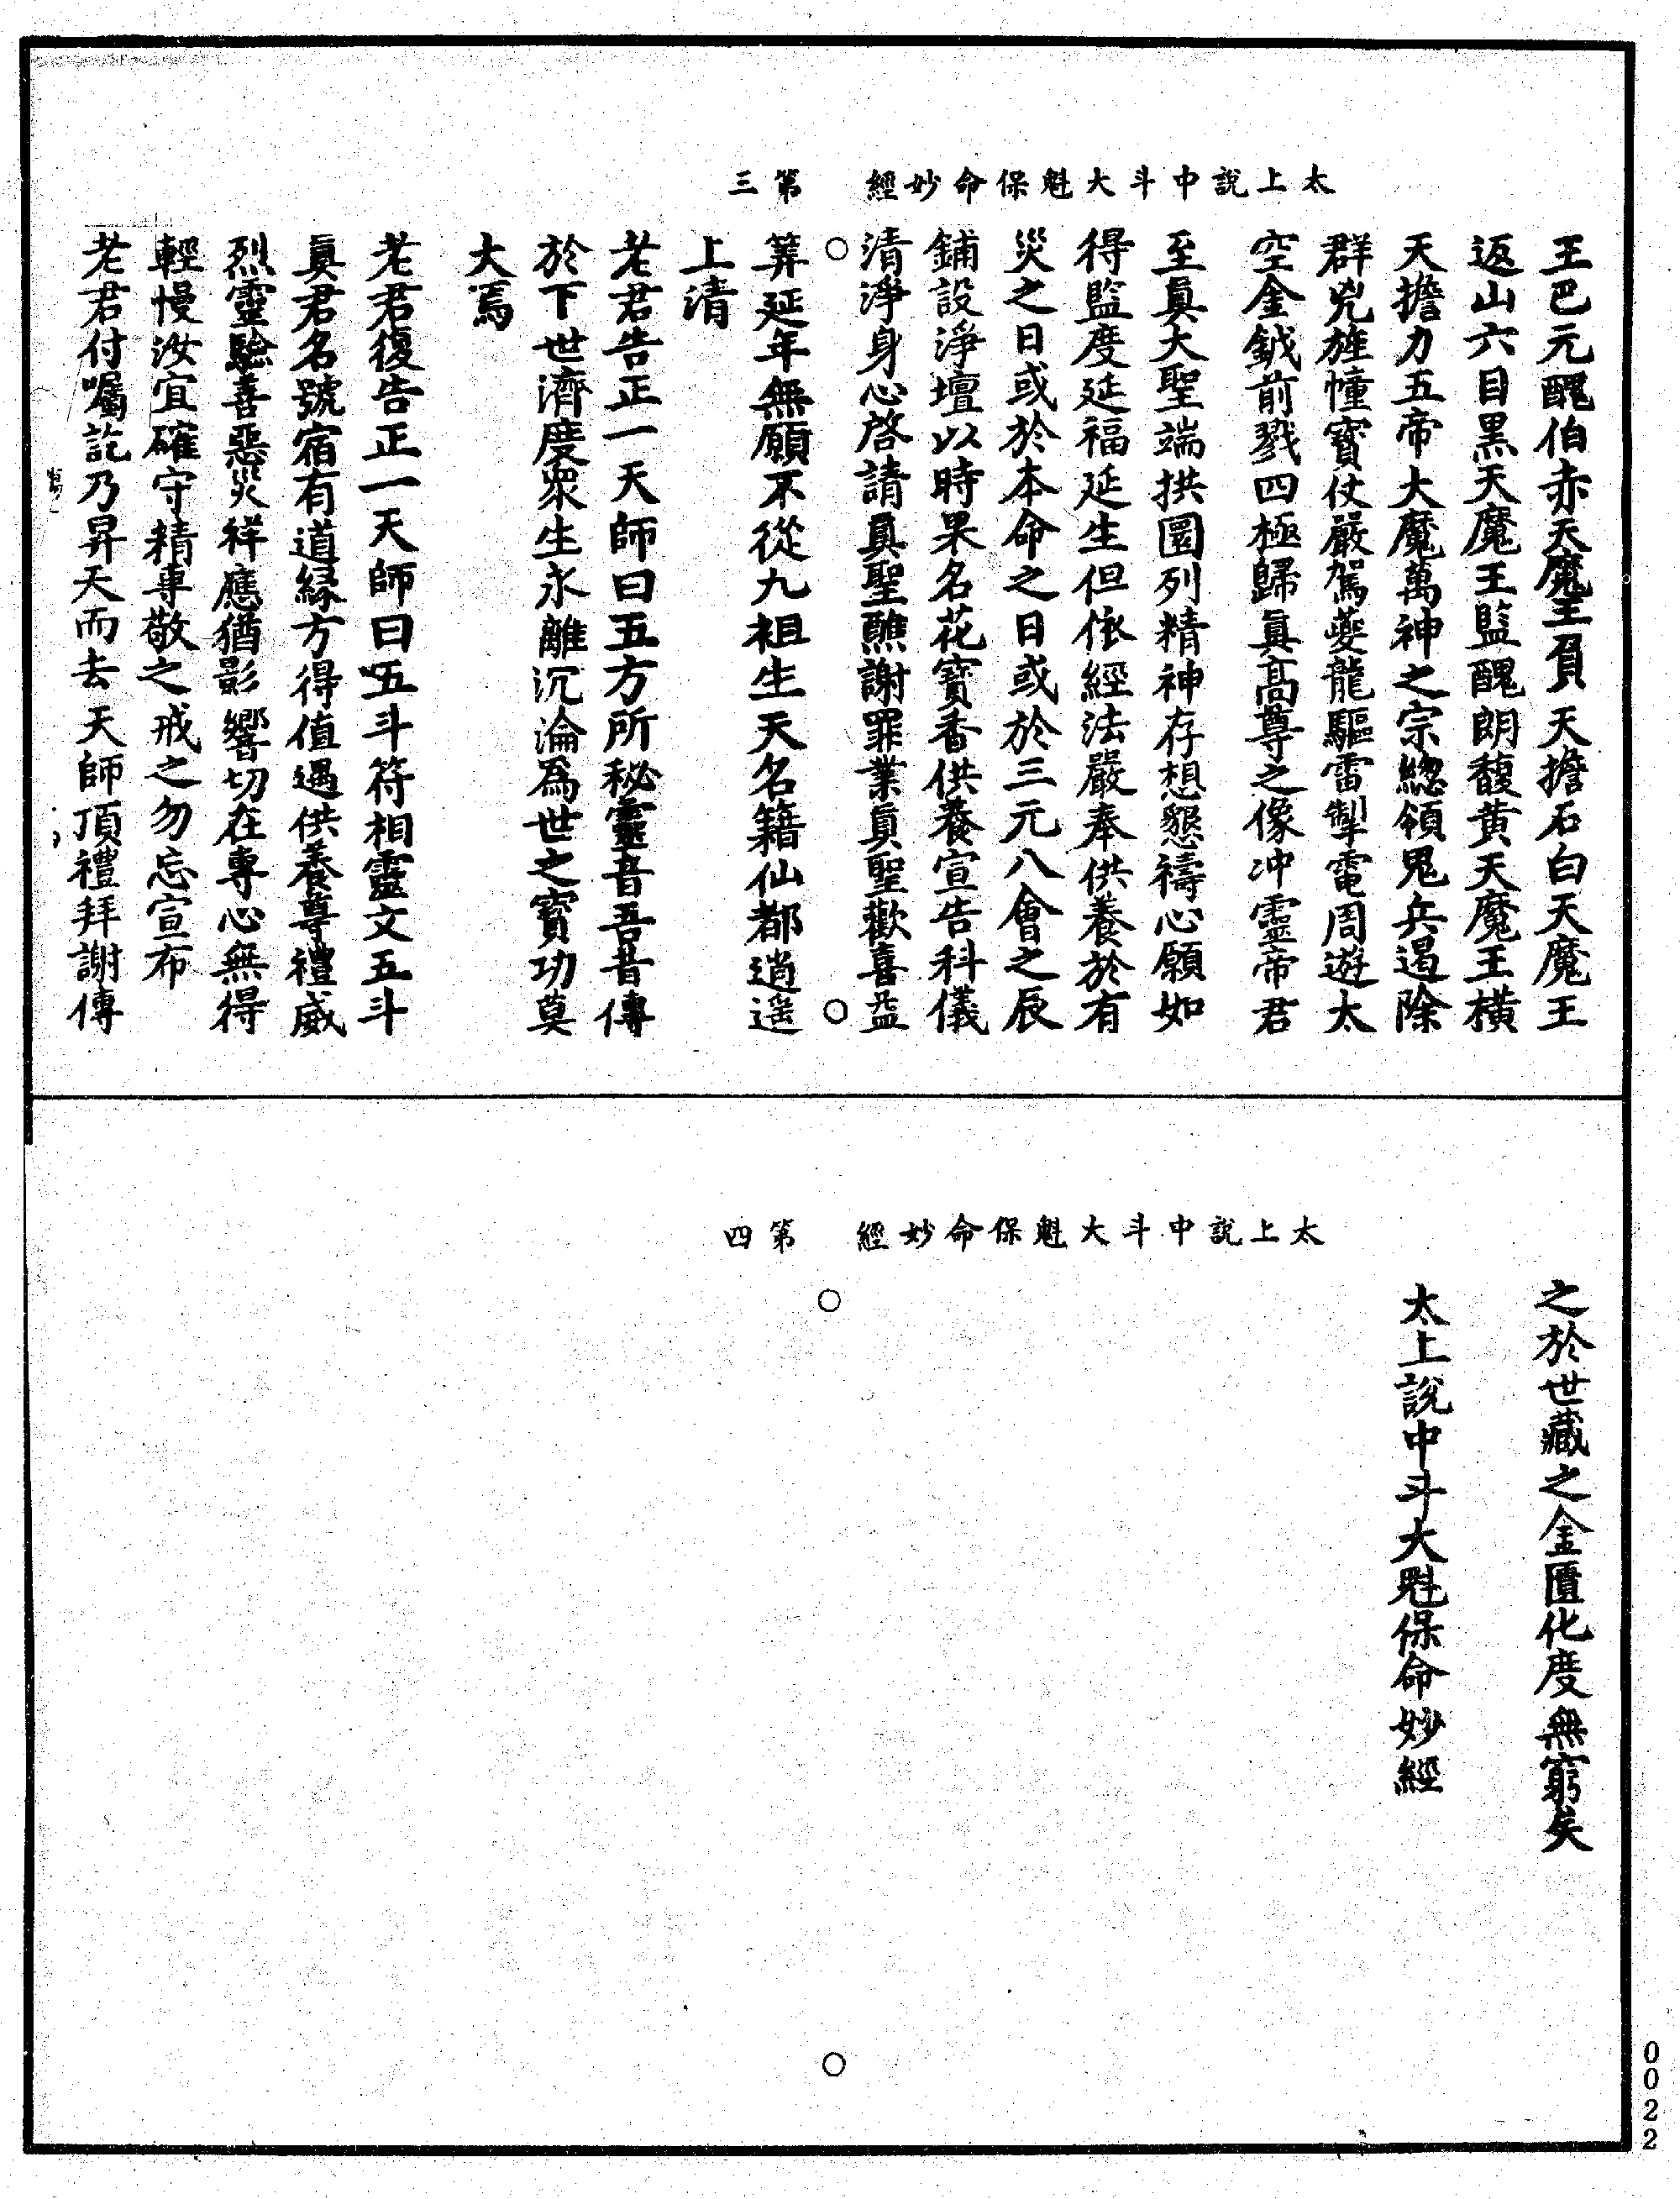 太上說中斗大魁保命妙經　第三
王巴元醜伯赤天魔王負天擔石白天魔王
返山六目黑天魔王監醜朗馥黄天魔王橫
天擔力五帝大魔萬神之宗緫領鬼兵遏除
群兇旌幢寳仗嚴駕夔龍驅雷掣電周遊太
空金鉞前戮四極歸眞高尊之像冲靈帝君
至眞大聖端拱圜列精神存想懇禱心願如
得監度延福延生但依經法嚴奉供養於有
災之日或於本命之日或於三元八會之辰
鋪設淨壇以時果名花寳香供養宣告科儀
清淨身心啓請眞聖醮謝罪業眞聖歡喜益
筭延年無願不從九祖生天名籍仙都逍遥
上清
老君告正一天師曰五方所秘靈音吾昔傳
於下世濟度衆生永離沉淪爲世之寳功莫
大焉
老君復告正一天師曰五斗符相靈文五斗
眞君名號宿有道緣方得值遇供養尊禮威
烈靈驗善惡災祥應猶影響切在專心無得
輕慢汝宜確守精專敬之戒之勿忘宣布
老君付囑訖乃昇天而去天師頂禮拜謝傳
太上說中斗大魁保命妙經　第四
之於世藏之金匱化度無窮矣
太上說中斗大魁保命妙經
0022